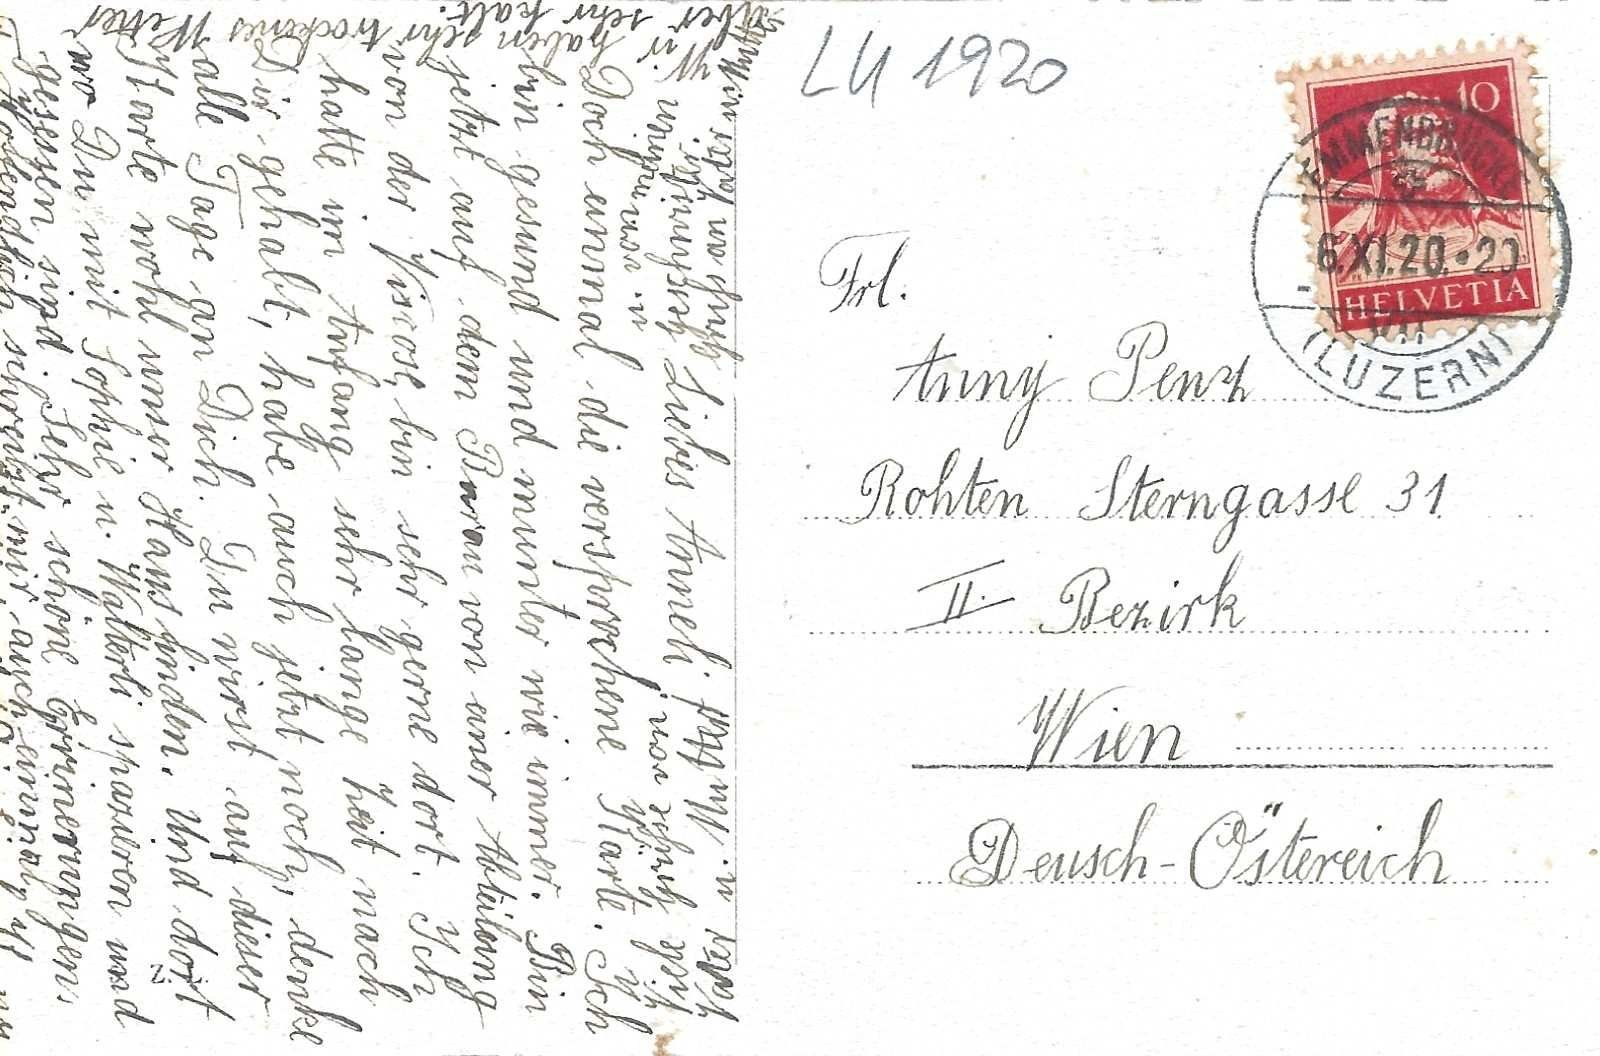 LU 1920
10
EMMENBRÜCKE
6.XI.20.-20
HELVETIA
(LUZERN)
Frl.
Anny Penz
Rohten Sterngasse 31
II. Bezirk
Wien
Deusch-Östereich
Liebes Anneli.
Doch einmal die versprochene Karte. Ich
bin gesund und munter wie immer. Bin
jetzt auf dem Buran von einer Abteilung
von der Viscose, bin sehr gerne dort. Ich
hatte im Anfang sehr lange Zeit nach
Dir gehabt, habe auch jetzt noch, denke
alle Tage an Dich. Du wirst auf dieser
Karte wohl unser Haus finden. Und dort
wo Du mit Sophie u. Walterli spazieren und
gesessen sind. Sehr schöne Erinerungen.
Hoffendlich schreibst mir auch einmal
Wir haben sehr trockenes Wetter
aber sehr kalt.
Z.Z.